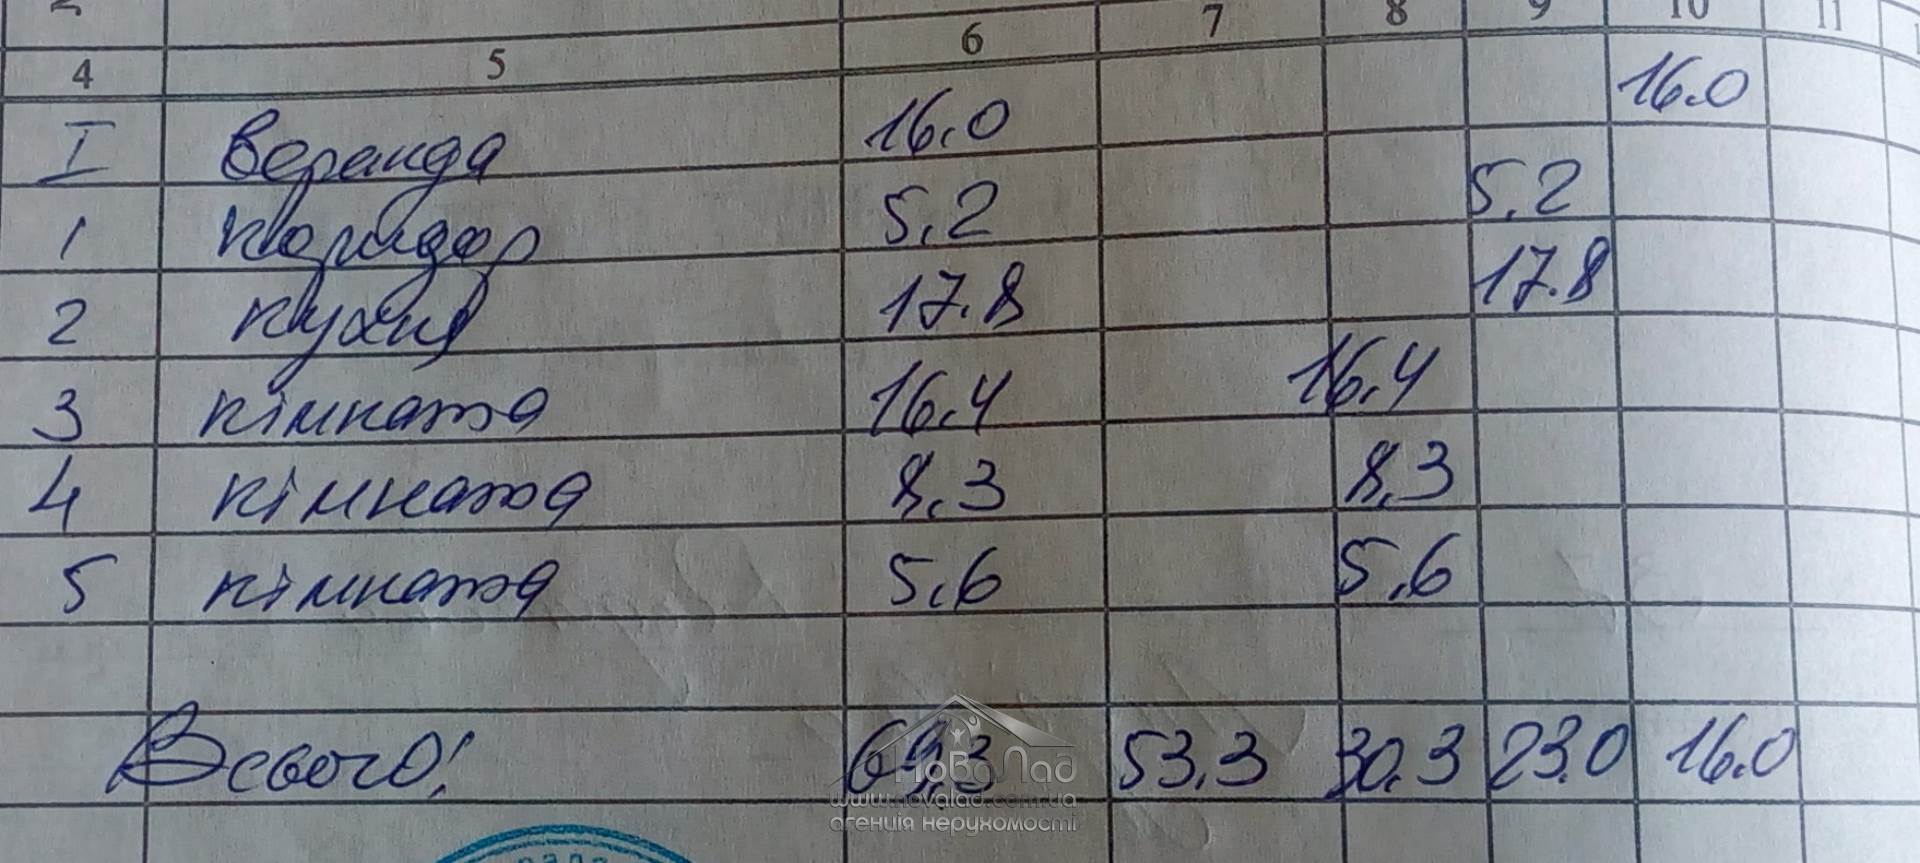 4 5 6 7 8 9 10 11
I веранда 16.0 16.0
1 коридор 5,2 5,2
2 кухня 17.8 17.8
3 кімната 16,4 16,4
4 кімната 8,3 8,3
5 кімната 5,6 5,6
Всього: 69,3 53,3 30,3 23.0 16.0
Нова Лад
www.novalad.com.ua
агенція нерухомості